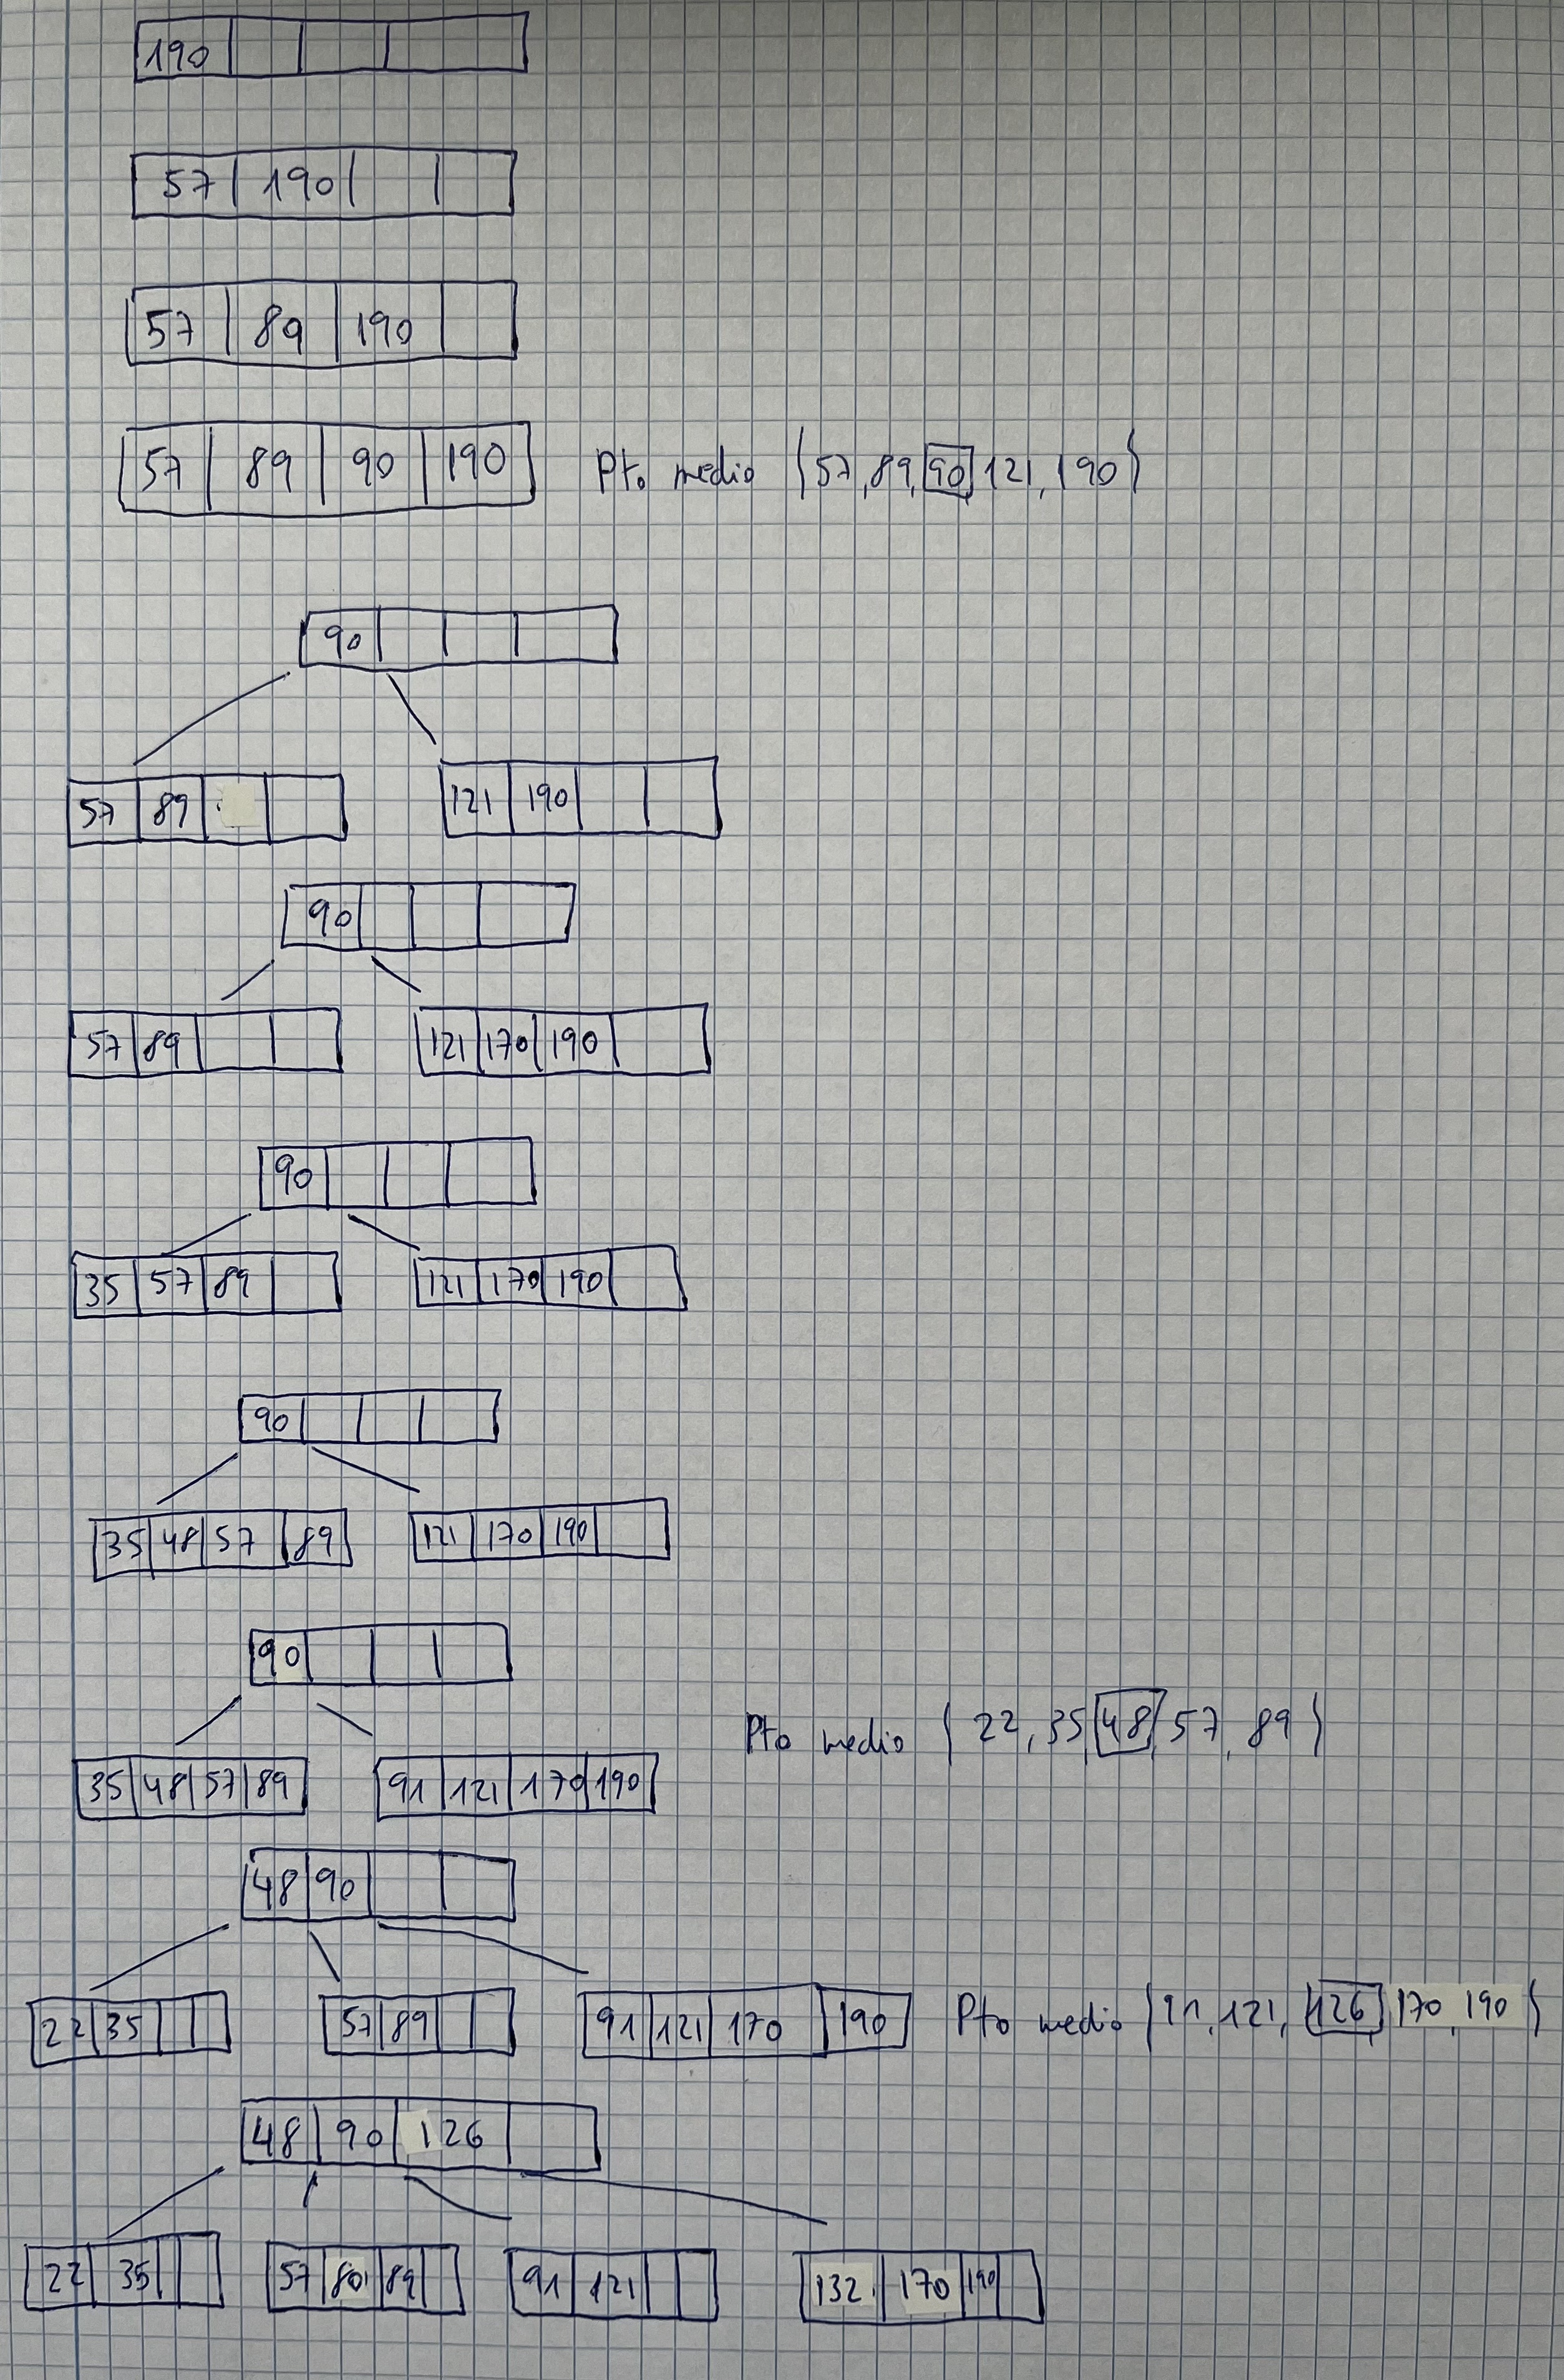 190
57 190
57 89 190
57 89 90 190 Pto medio (57, 89, 90, 121, 190)
90
57 89 121 190
90
57 89 121 170 190
90
35 57 89 121 170 190
90
35 48 57 89 121 170 190
90
Pto medio (22, 35, 48, 57, 89)
35 48 57 89 91 121 170 190
48 90
22 35 57 89 91 121 170 190 Pto medio (91, 121, 126, 170, 190)
48 90 126
22 35 57 80 89 91 121 132 170 190